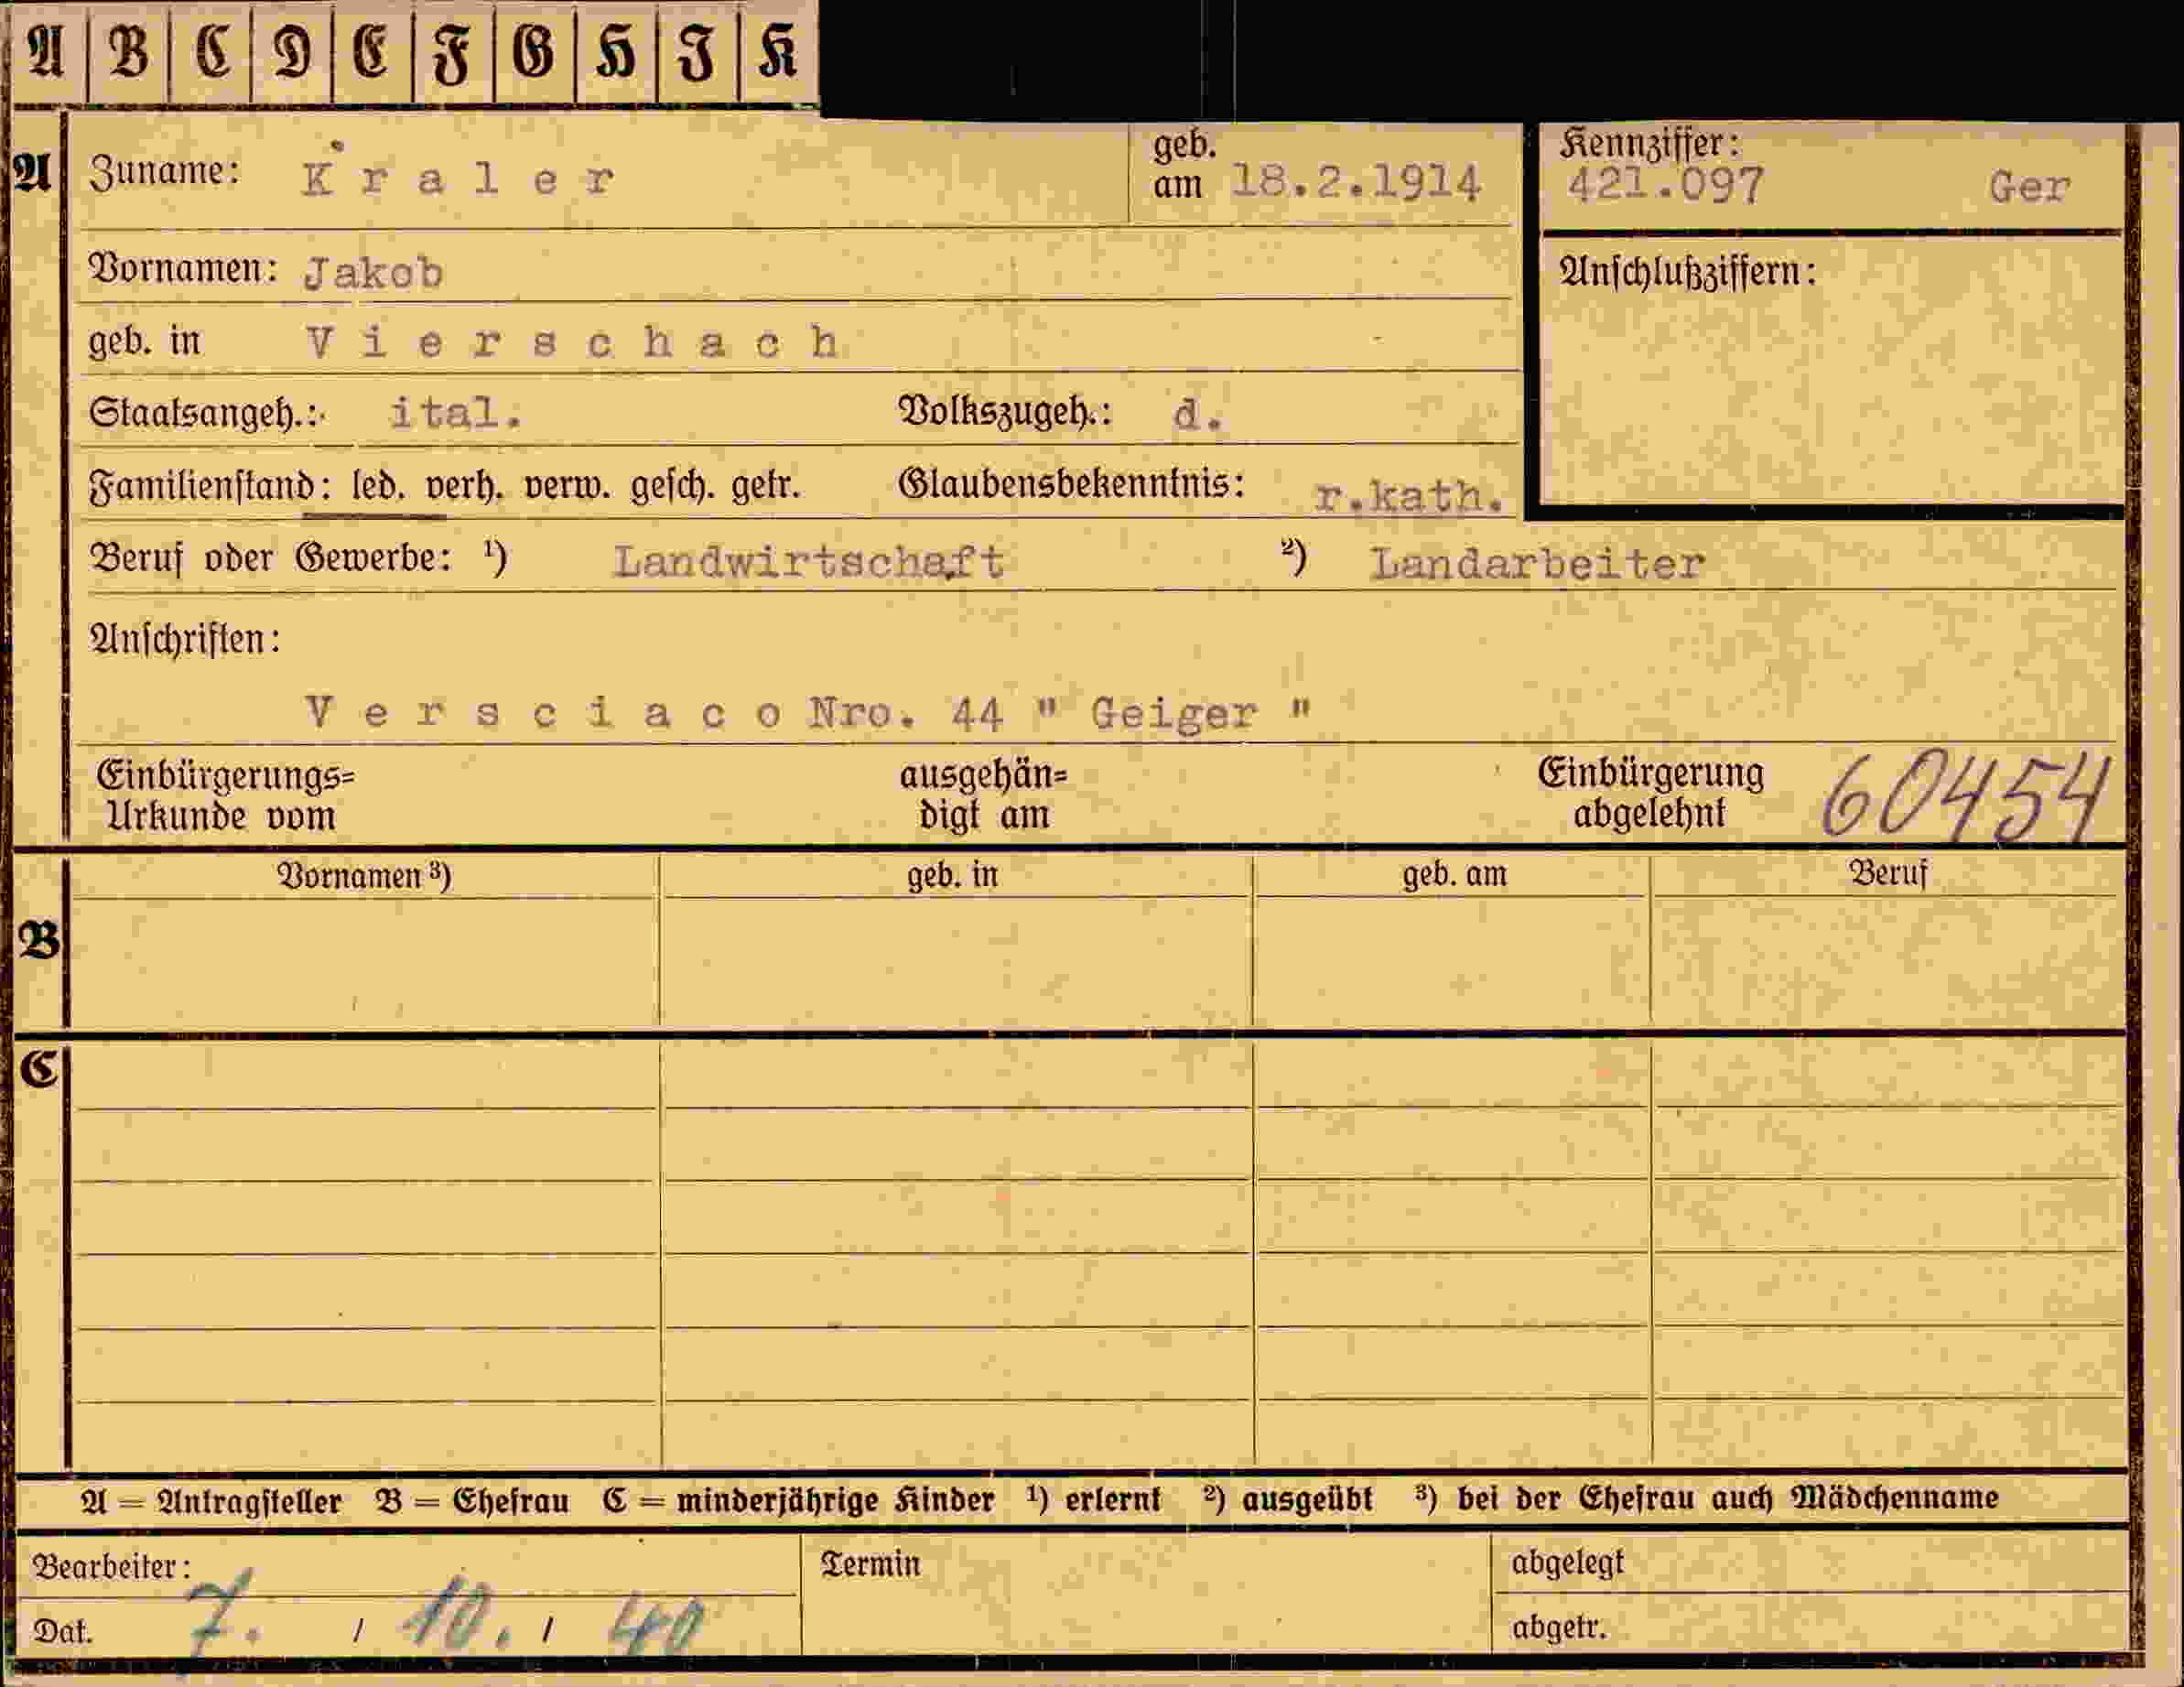 A B C D E F G H J K
A Zuname: Kraler geb. am 18.2.1914 Kennziffer: 421.097 Ger
Vornamen: Jakob Anschlußziffern:
geb. in Vierschach
Staatsangeh.: ital. Volkszugeh.: d.
Familienstand: led. verh. verw. gesch. getr. Glaubensbekenntnis: r.kath.
Beruf oder Gewerbe: ¹) Landwirtschaft ²) Landarbeiter
Anschriften:
Versciaco Nro. 44 " Geiger "
Einbürgerungs= ausgehän= Einbürgerung 60454
Urkunde vom digt am abgelehnt
Vornamen ³) geb. in geb. am Beruf
B
C
A = Antragsteller B = Ehefrau C = minderjährige Kinder ¹) erlernt ²) ausgeübt ³) bei der Ehefrau auch Mädchenname
Bearbeiter: Termin abgelegt
Dat. 7. / 10. / 40 abgetr.